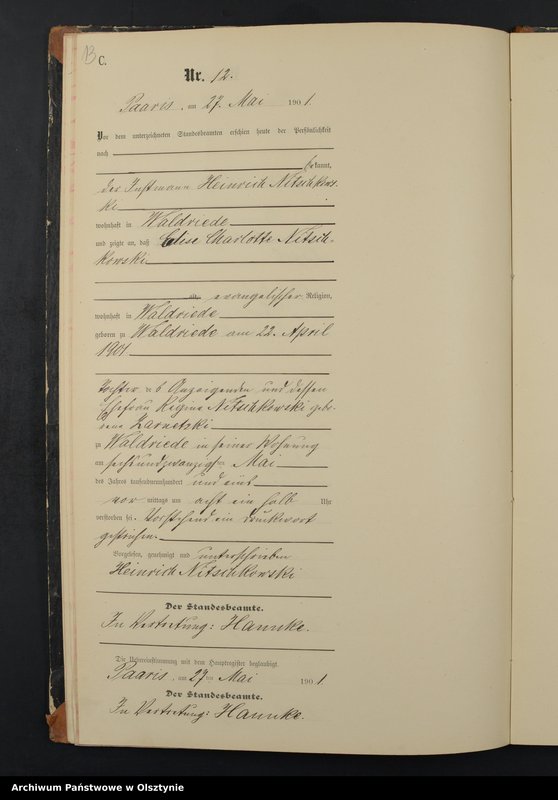 B C.
Nr. 12.
Paaris, am 27. Mai 1901.
Vor dem unterzeichneten Standesbeamten erschien heute, der Persönlichkeit
nach
bekannt,
der Instmann Heinrich Nitschkows-
ki
wohnhaft in Waldriede
und zeigte an, daß Elise Charlotte Nitsch-
kowski
alt, evangelischer Religion,
wohnhaft in Waldriede
geboren zu Waldriede am 22. April
1901
Tochter des Anzeigenden und dessen
Ehefrau Regine Nitschkowski gebo-
rene Zarnetzki
zu Waldriede in seiner Wohnung
am sechsundzwanzigsten Mai
des Jahres tausendneunhundert und eins
vor mittags um acht ein halb Uhr
verstorben sei. Vorstehend ein Druckwort
gestrichen.
Vorgelesen, genehmigt und unterschrieben
Heinrich Nitschkowski
Der Standesbeamte.
In Vertretung: Hannke.
Die Uebereinstimmung mit dem Hauptregister beglaubigt
Paaris, am 27ten Mai 1901
Der Standesbeamte.
In Vertretung: Hannke.
Archiwum Państwowe w Olsztynie